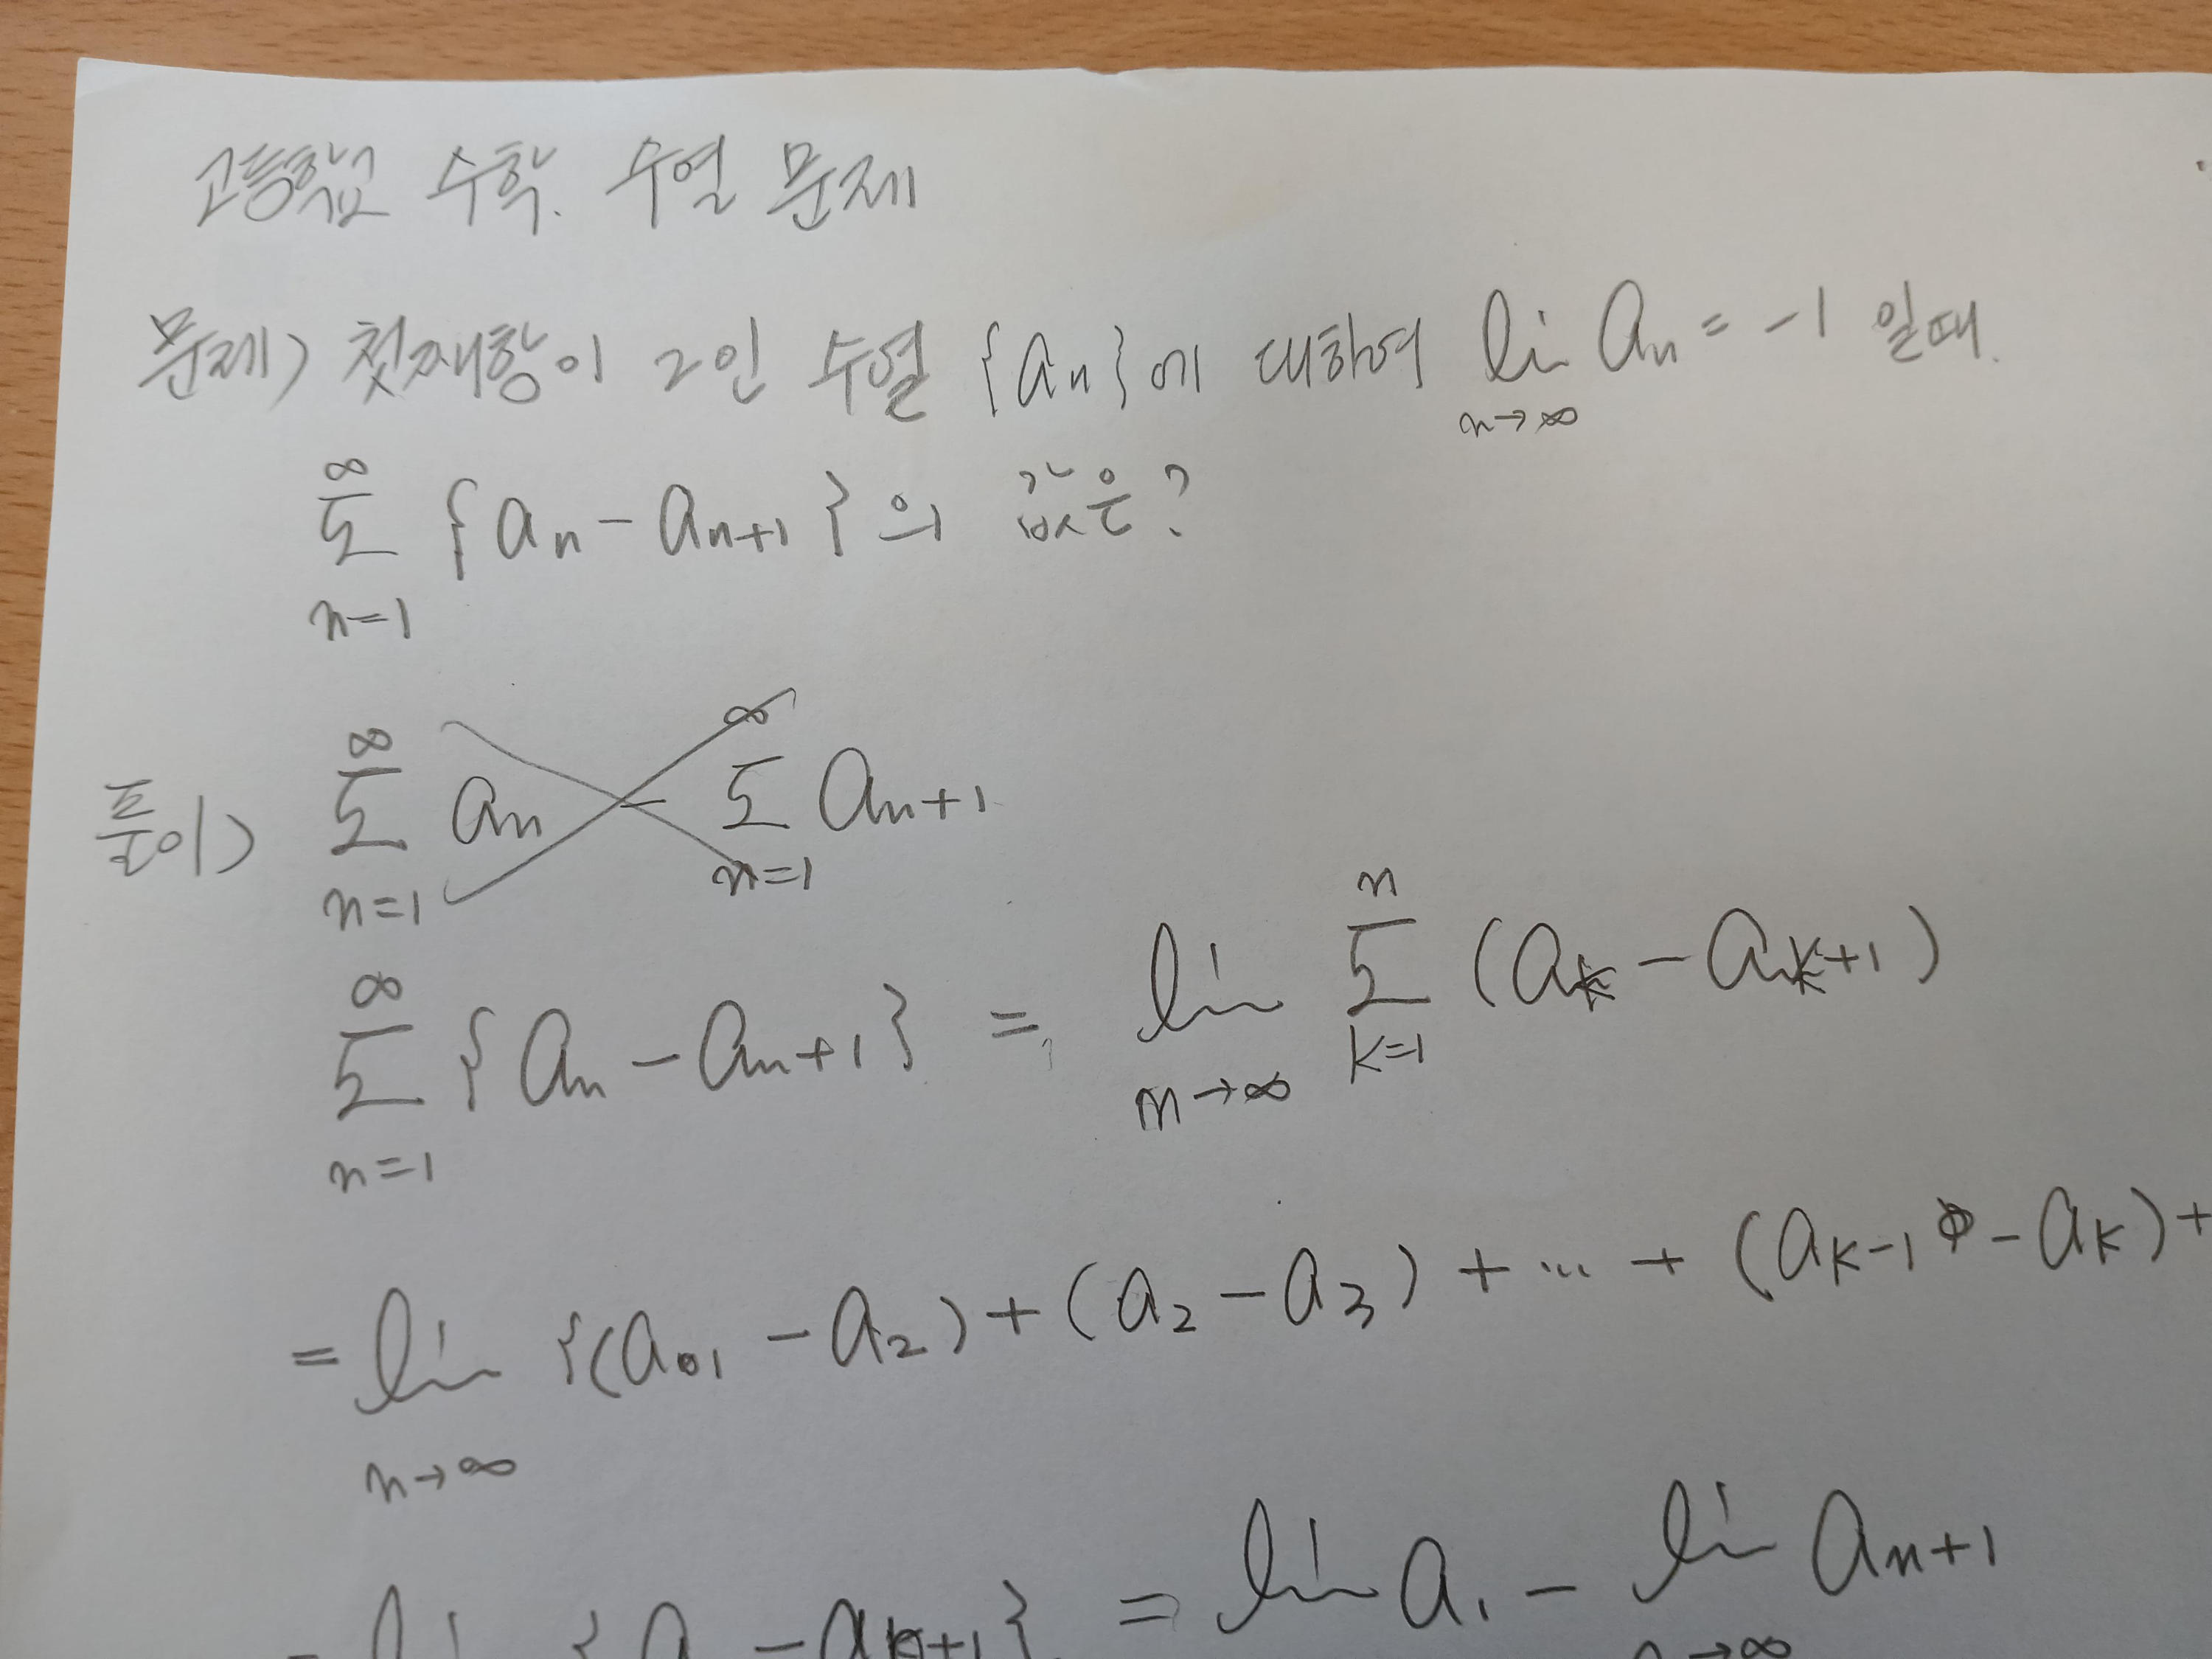 고등학교 수학. 수열 문제
문제) 첫째항이 2인 수열 {aₙ}에 대하여 lim_{n→∞} aₙ = -1 일때.
∑_{n=1}^{∞} {aₙ - aₙ₊₁}의 값은?
풀이) ∑_{n=1}^{∞} aₙ - ∑_{n=1}^{∞} aₙ₊₁
∑_{n=1}^{∞} {aₙ - aₙ₊₁} = lim_{n→∞} ∑_{k=1}^{n} (aₖ - aₖ₊₁)
= lim_{n→∞} {(a₁ - a₂) + (a₂ - a₃) + ... + (aₖ₋₁ - aₖ) +
= li {a - aₖ₊₁} = lim a₁ - lim_{n→∞} aₙ₊₁